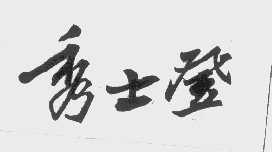 秀士登